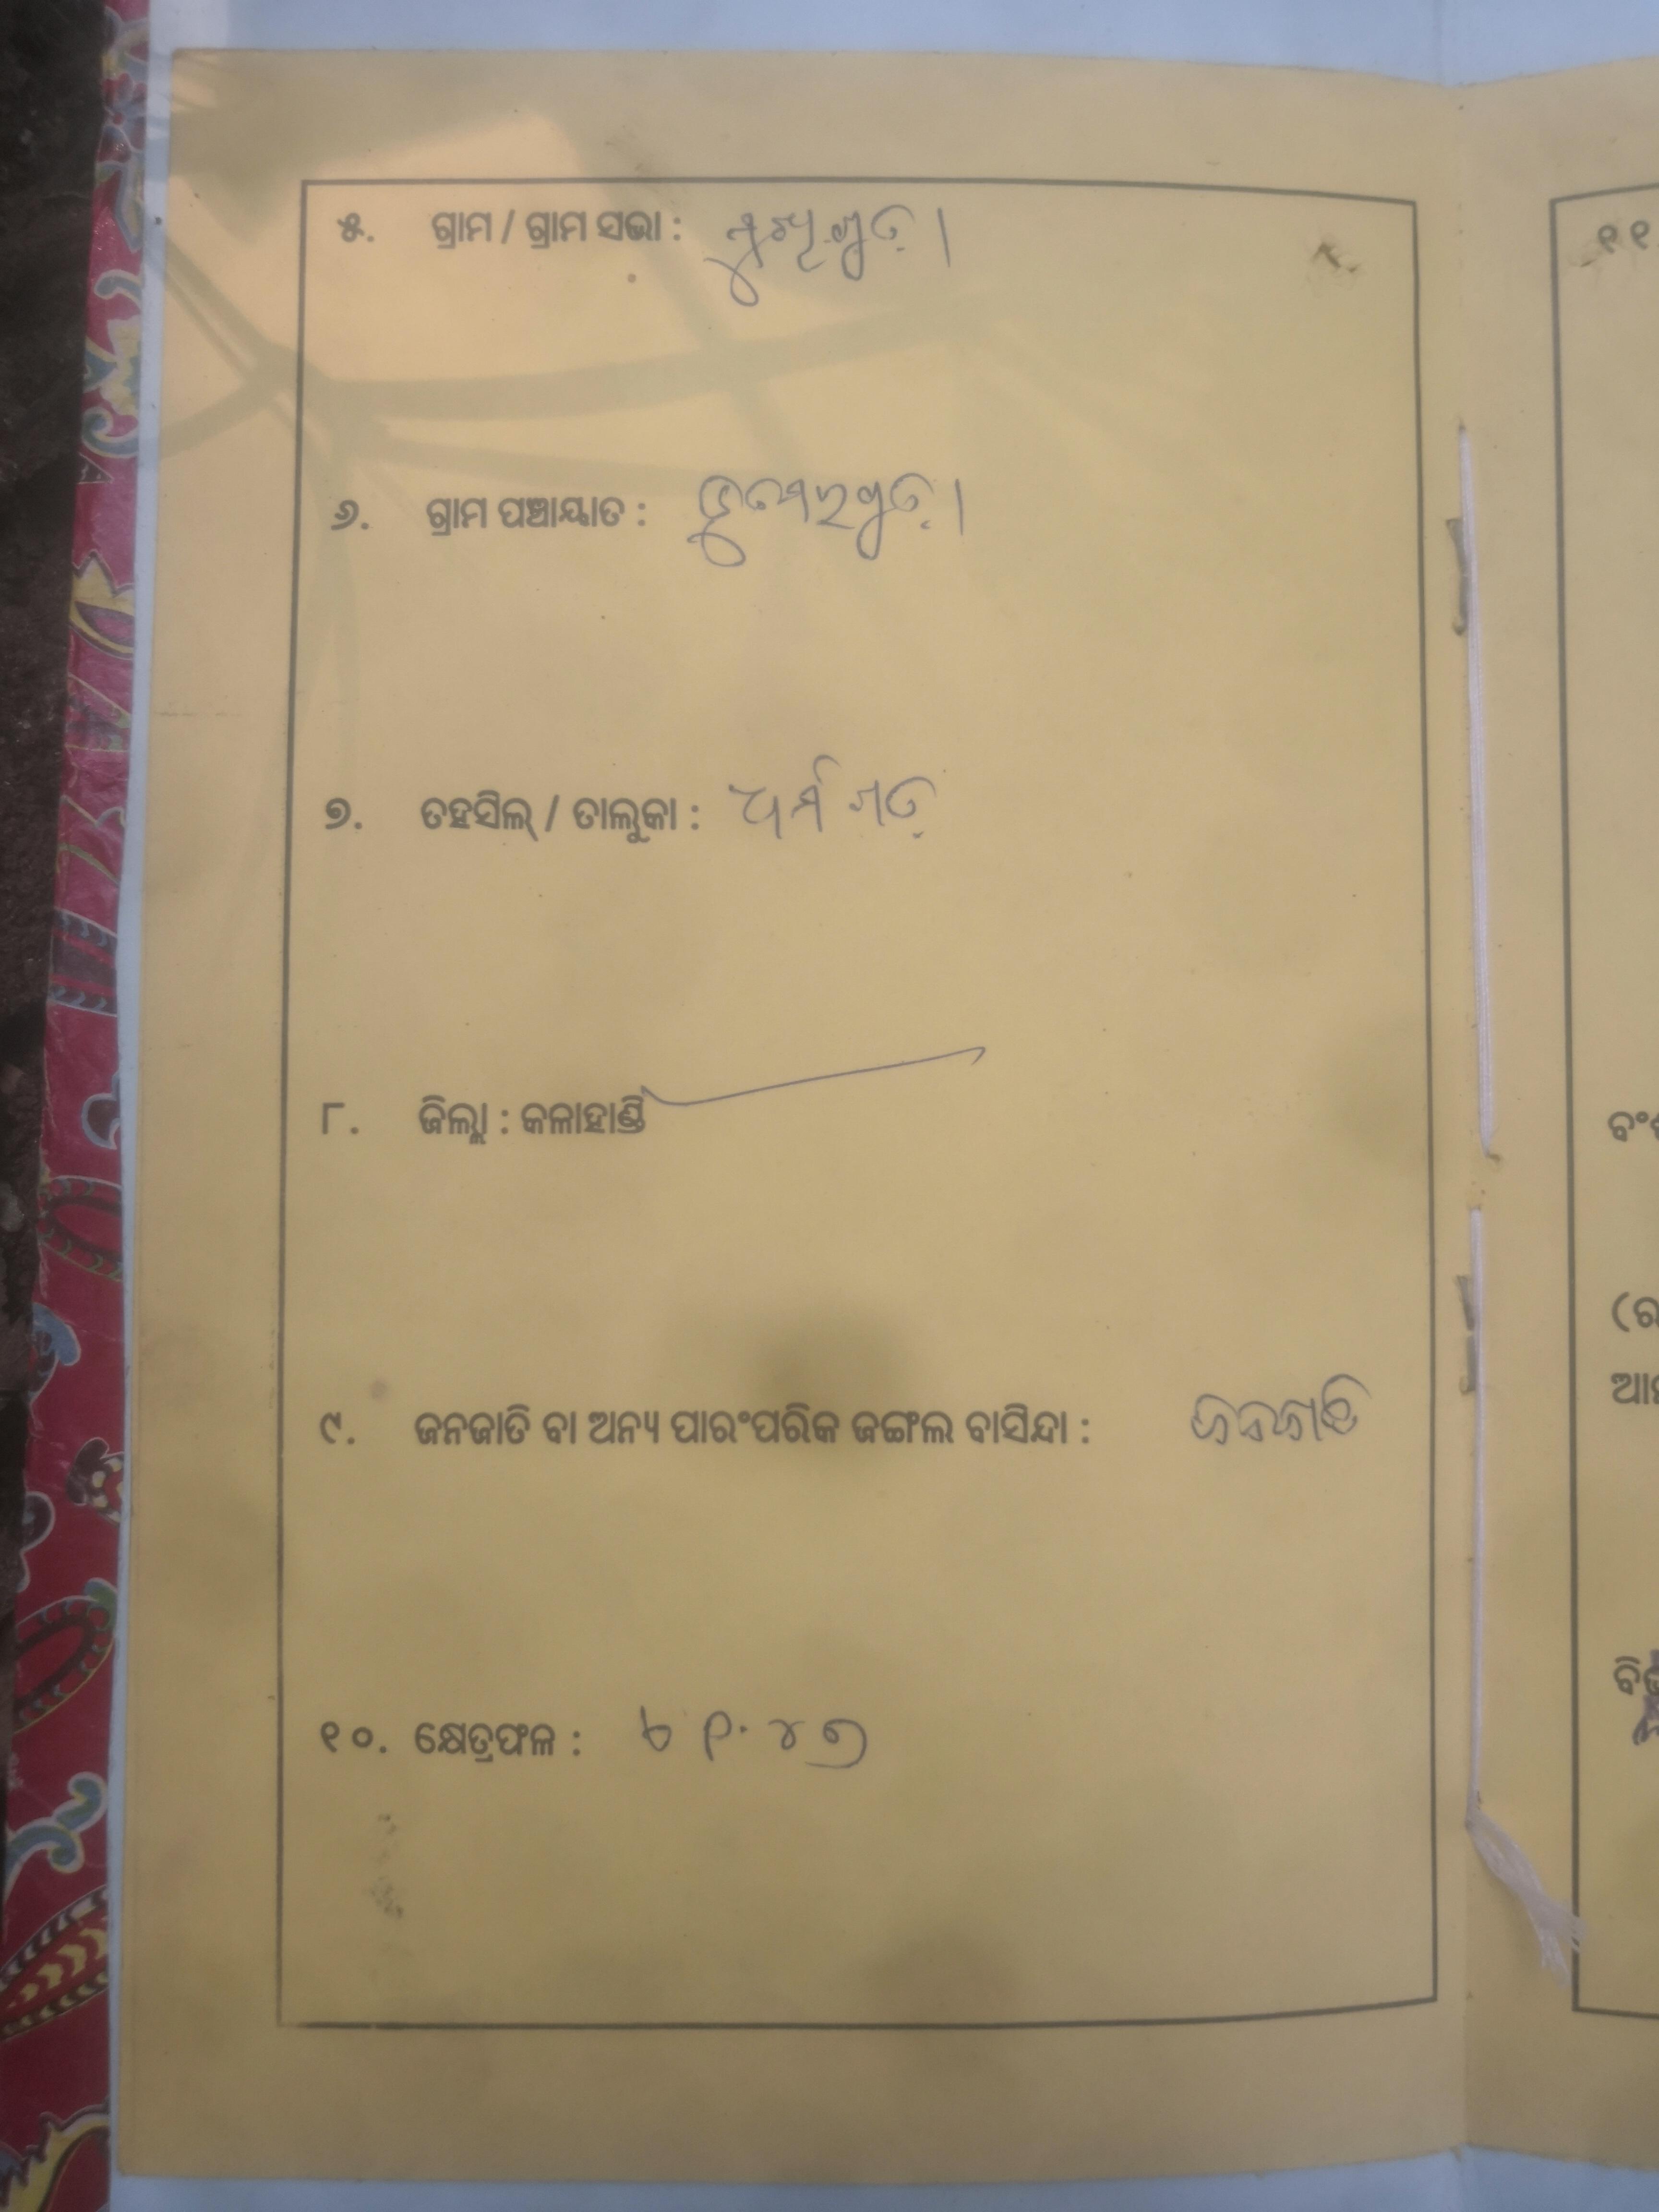 ୫. ଗ୍ରାମ / ଗ୍ରାମ ସଭା :
୬. ଗ୍ରାମ ପଞ୍ଚାୟାତ :
୭. ତହସିଲ୍ / ତାଲୁକା : ଧର୍ମଗଡ଼
୮. ଜିଲ୍ଲା : କଳାହାଣ୍ଡି
୯. ଜନଜାତି ବା ଅନ୍ୟ ପାରଂପରିକ ଜଙ୍ଗଲ ବାସିନ୍ଦା : ଜନଜାତି
୧୦. କ୍ଷେତ୍ରଫଳ :
୧୧